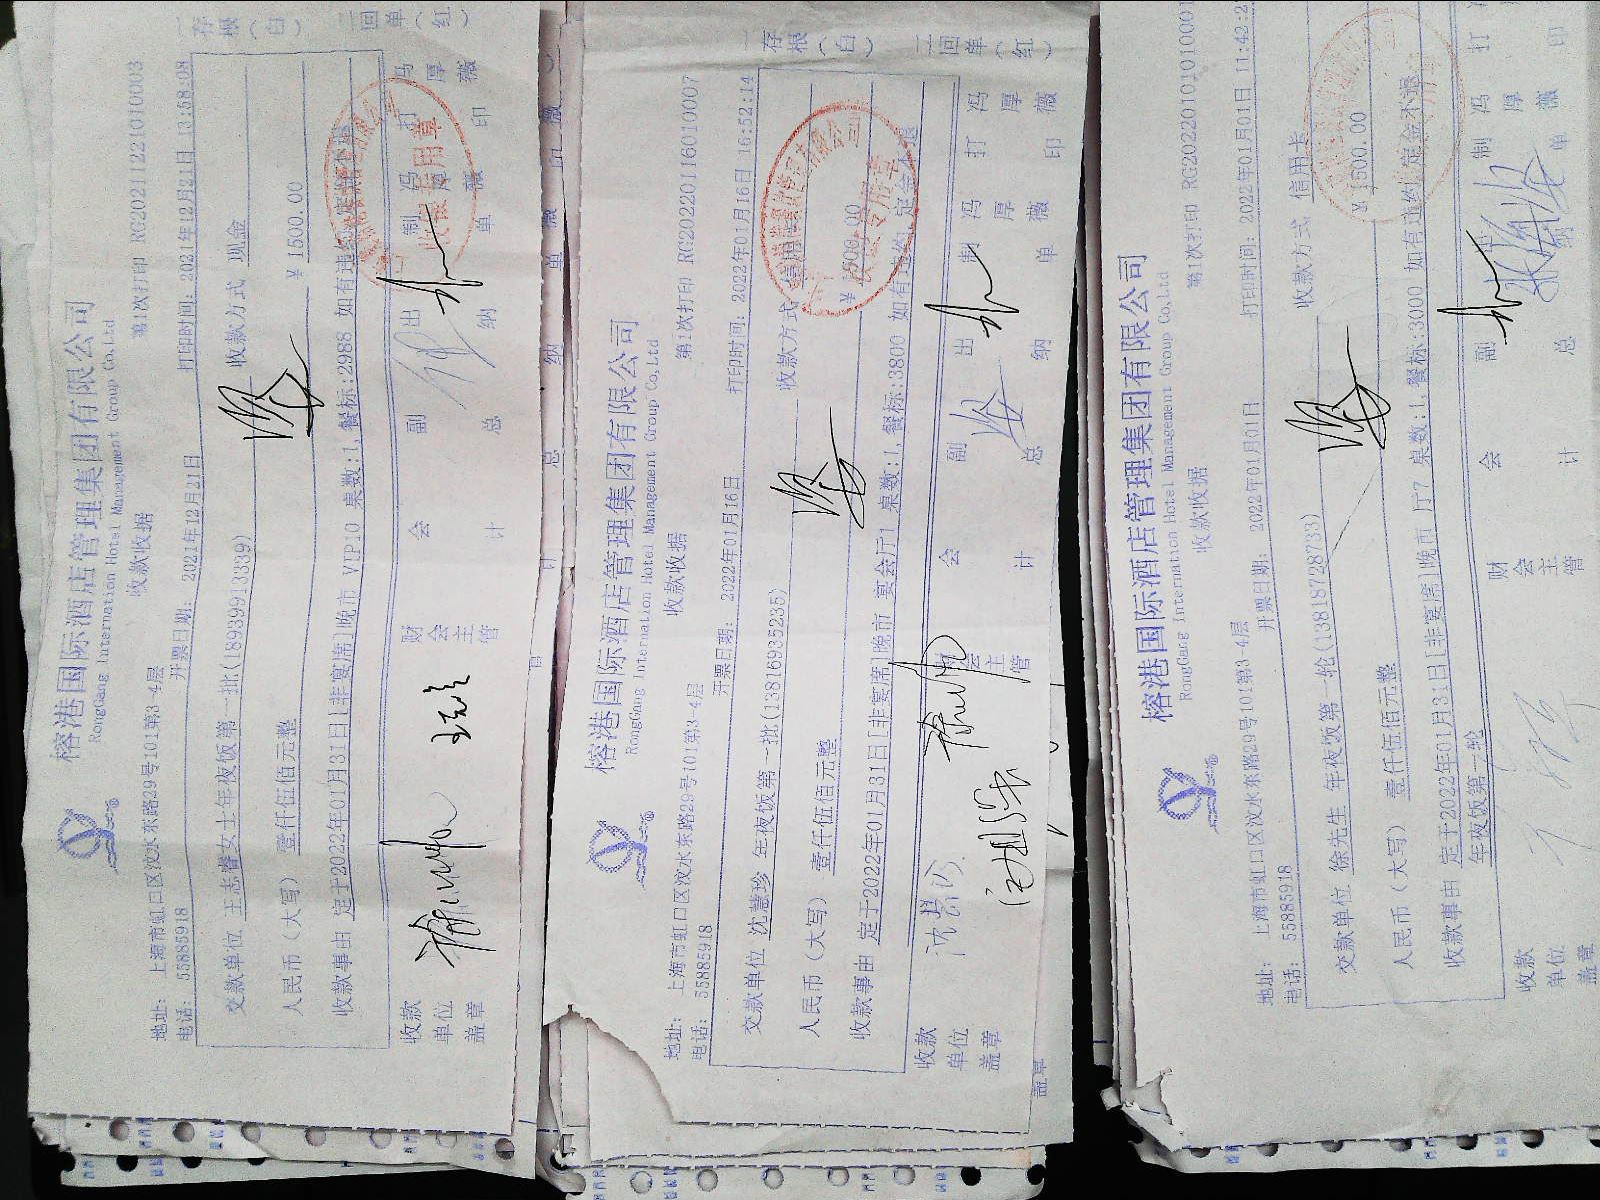 榕港国际酒店管理集团有限公司
RongGang International Hotel Management Group Co,Ltd
收款收据
第1次打印 RG20211221010003
地址: 上海市虹口区汶水东路29号101第3-4层
电话: 55885918
开票日期: 2021年12月21日
打印时间: 2021年12月21日 13:58:08
交款单位 王志睿女士年夜饭第一批(18939913339)
收款方式 现金
人民币（大写） 壹仟伍佰元整
￥ 1500.00
收款事由 定于2022年01月31日[非宴席]晚市 VIP10 桌数:1,餐标:2988 如有违约定金不退
收款单位盖章
财会主管
会计
副总
出纳
制单 冯厚薇
打印 冯厚薇
一存根（白）
二回单（红）
榕港国际酒店管理集团有限公司
RongGang International Hotel Management Group Co,Ltd
收款收据
第1次打印 RG20220116010007
地址: 上海市虹口区汶水东路29号101第3-4层
电话: 55885918
开票日期: 2022年01月16日
打印时间: 2022年01月16日 16:52:14
交款单位 沈慧珍 年夜饭第一批(13816935235)
收款方式 信用卡
人民币（大写） 壹仟伍佰元整
￥ 1500.00
收款事由 定于2022年01月31日[非宴席]晚市 宴会厅1 桌数:1,餐标:3800 如有违约定金不退
收款单位盖章
财会主管
会计
副总
出纳
制单 冯厚薇
打印 冯厚薇
一存根（白）
二回单（红）
榕港国际酒店管理集团有限公司
RongGang International Hotel Management Group Co,Ltd
收款收据
第1次打印 RG20220101010001
地址: 上海市虹口区汶水东路29号101第3-4层
电话: 55885918
开票日期: 2022年01月01日
打印时间: 2022年01月01日 11:42:2
交款单位 徐先生 年夜饭第一轮(13818728733)
收款方式 信用卡
人民币（大写） 壹仟伍佰元整
￥ 1500.00
收款事由 定于2022年01月31日[非宴席]晚市 厅7 桌数:1,餐标:3000 如有违约定金不退
年夜饭第一轮
收款单位盖章
财会主管
会计
副总
出纳
制单 冯厚薇
打印